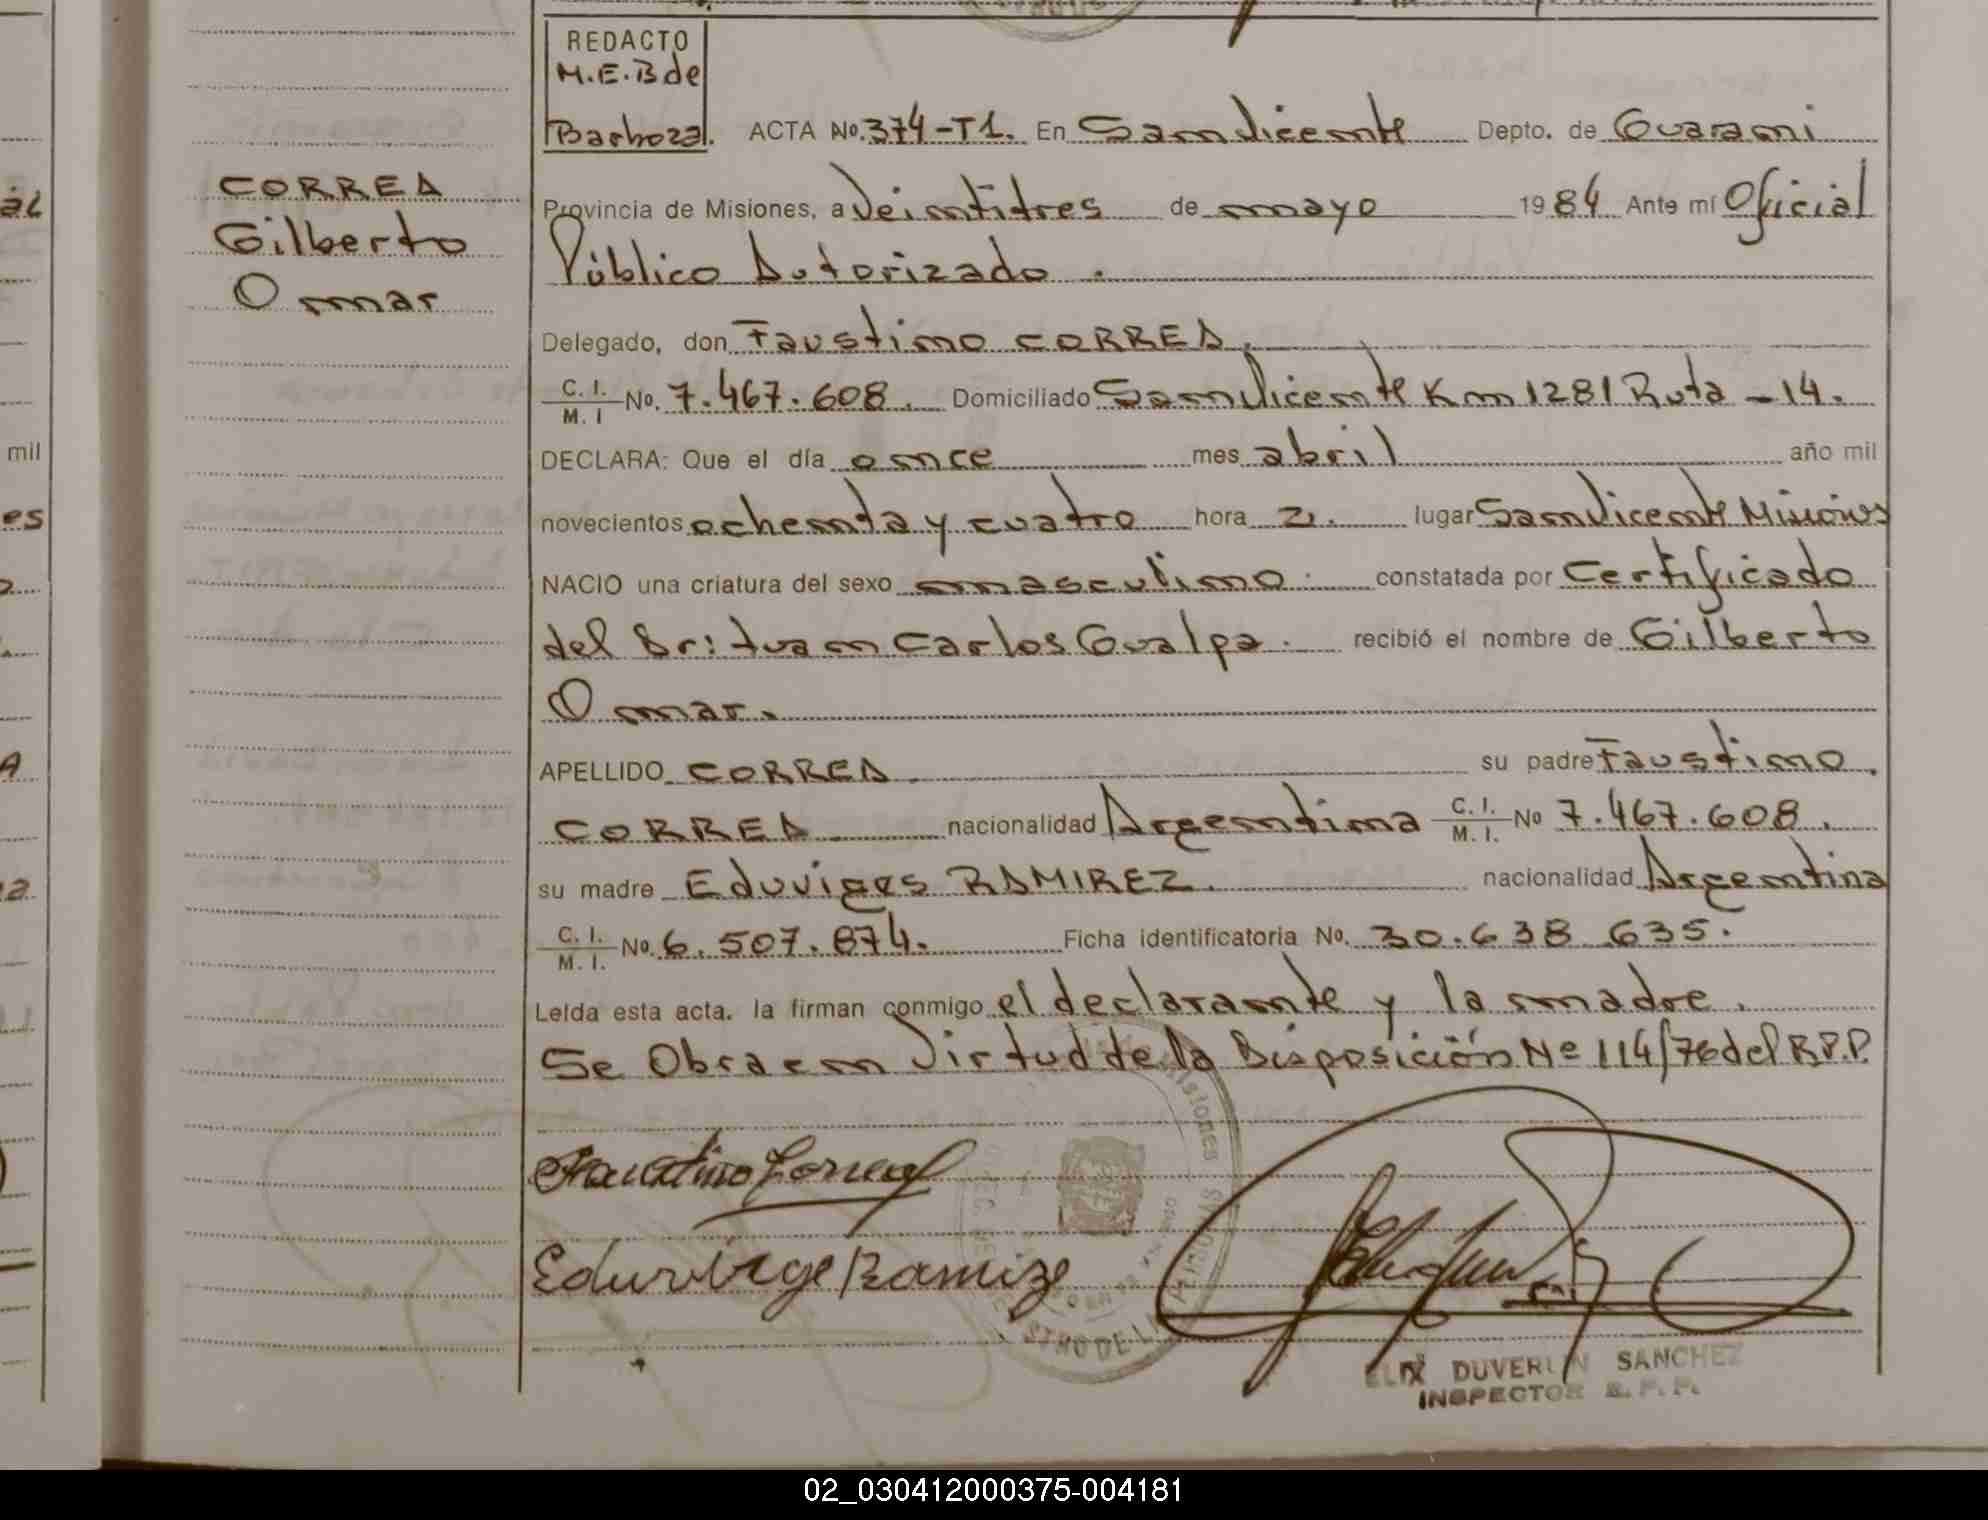 REDACTO
M.E.B de
Barboza.
ACTA No. 374-T1. En San Vicente Depto. de Guarani
CORREA
Gilberto
Omar
Provincia de Misiones, a Veintitres de mayo 1984 Ante mí Oficial
Público Autorizado.
Delegado, don Faustino CORREA.
C. I. / M. I No. 7.467.608. Domiciliado San Vicente Km 1281 Ruta - 14.
DECLARA: Que el día once mes abril año mil
novecientos ochenta y cuatro hora 2. lugar San Vicente Misiones
NACIO una criatura del sexo masculino. constatada por Certificado
del Dr: Juan Carlos Gualpa. recibió el nombre de Gilberto
Omar.
APELLIDO CORREA. su padre Faustino.
CORREA nacionalidad Argentina C. I. / M. I. No 7.467.608.
su madre Eduviges RAMIREZ. nacionalidad Argentina
C. I. / M. I. No. 6.507.874. Ficha identificatoria No. 30.638.635.
Leída esta acta. la firman conmigo el declarante y la madre.
Se Obra en Virtud de la Disposición Nº 114/76 del R.P.P.
Faustino Correa
Eduvige Ramirez
DUVERLIN SANCHEZ
INSPECTOR R. P. P.
mil
es
02_030412000375-004181